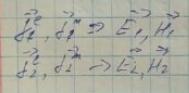 $\vec{j}_1^e, \vec{j}_1^m \Rightarrow \vec{E}_1, \vec{H}_1$
$\vec{j}_2^e, \vec{j}_2^m \rightarrow \vec{E}_2, \vec{H}_2$